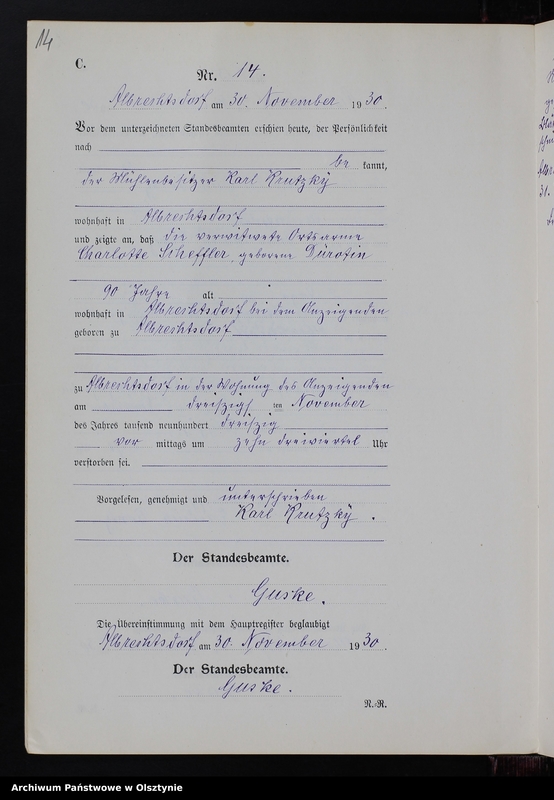 14
C.
Nr. 14.
Albrechtsdorf am 30. November 1930.
Vor dem unterzeichneten Standesbeamten erschien heute, der Persönlichkeit
nach
be kannt,
der Mühlenbesitzer Karl Krutzky
wohnhaft in Albrechtsdorf
und zeigte an, daß die verwitwete Ortsarme
Charlotte Scheffler, geborene Dürotin
90 Jahre alt
wohnhaft in Albrechtsdorf bei dem Anzeigenden
geboren zu Albrechtsdorf
zu Albrechtsdorf in der Wohnung des Anzeigenden
am dreißigsten November
des Jahres tausend neunhundert dreißig
vor mittags um zehn dreiviertel Uhr
verstorben sei.
Vorgelesen, genehmigt und unterschrieben
Karl Krutzky.
Der Standesbeamte.
Guske.
Die Übereinstimmung mit dem Hauptregister beglaubigt
Albrechtsdorf am 30. November 1930.
Der Standesbeamte.
Guske.
N.-R.
Archiwum Państwowe w Olsztynie